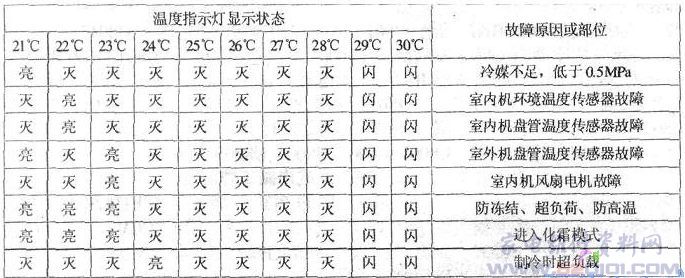 温度指示灯显示状态 故障原因或部位
21℃ 22℃ 23℃ 24℃ 25℃ 26℃ 27℃ 28℃ 29℃ 30℃
亮 灭 灭 灭 灭 灭 灭 灭 闪 闪 冷媒不足,低于0.5MPa
灭 亮 灭 灭 灭 灭 灭 灭 闪 闪 室内机环境温度传感器故障
灭 亮 灭 灭 灭 灭 灭 灭 闪 闪 室内机盘管温度传感器故障
亮 灭 亮 灭 灭 灭 灭 灭 闪 闪 室外机盘管温度传感器故障
灭 灭 亮 灭 灭 灭 灭 灭 闪 闪 室内机风扇电机故障
亮 亮 亮 灭 灭 灭 灭 灭 闪 闪 防冻结、超负荷、防高温
亮 亮 亮 灭 灭 灭 灭 灭 闪 闪 进入化霜模式
灭 灭 灭 亮 灭 灭 灭 灭 闪 闪 制冷时超负载